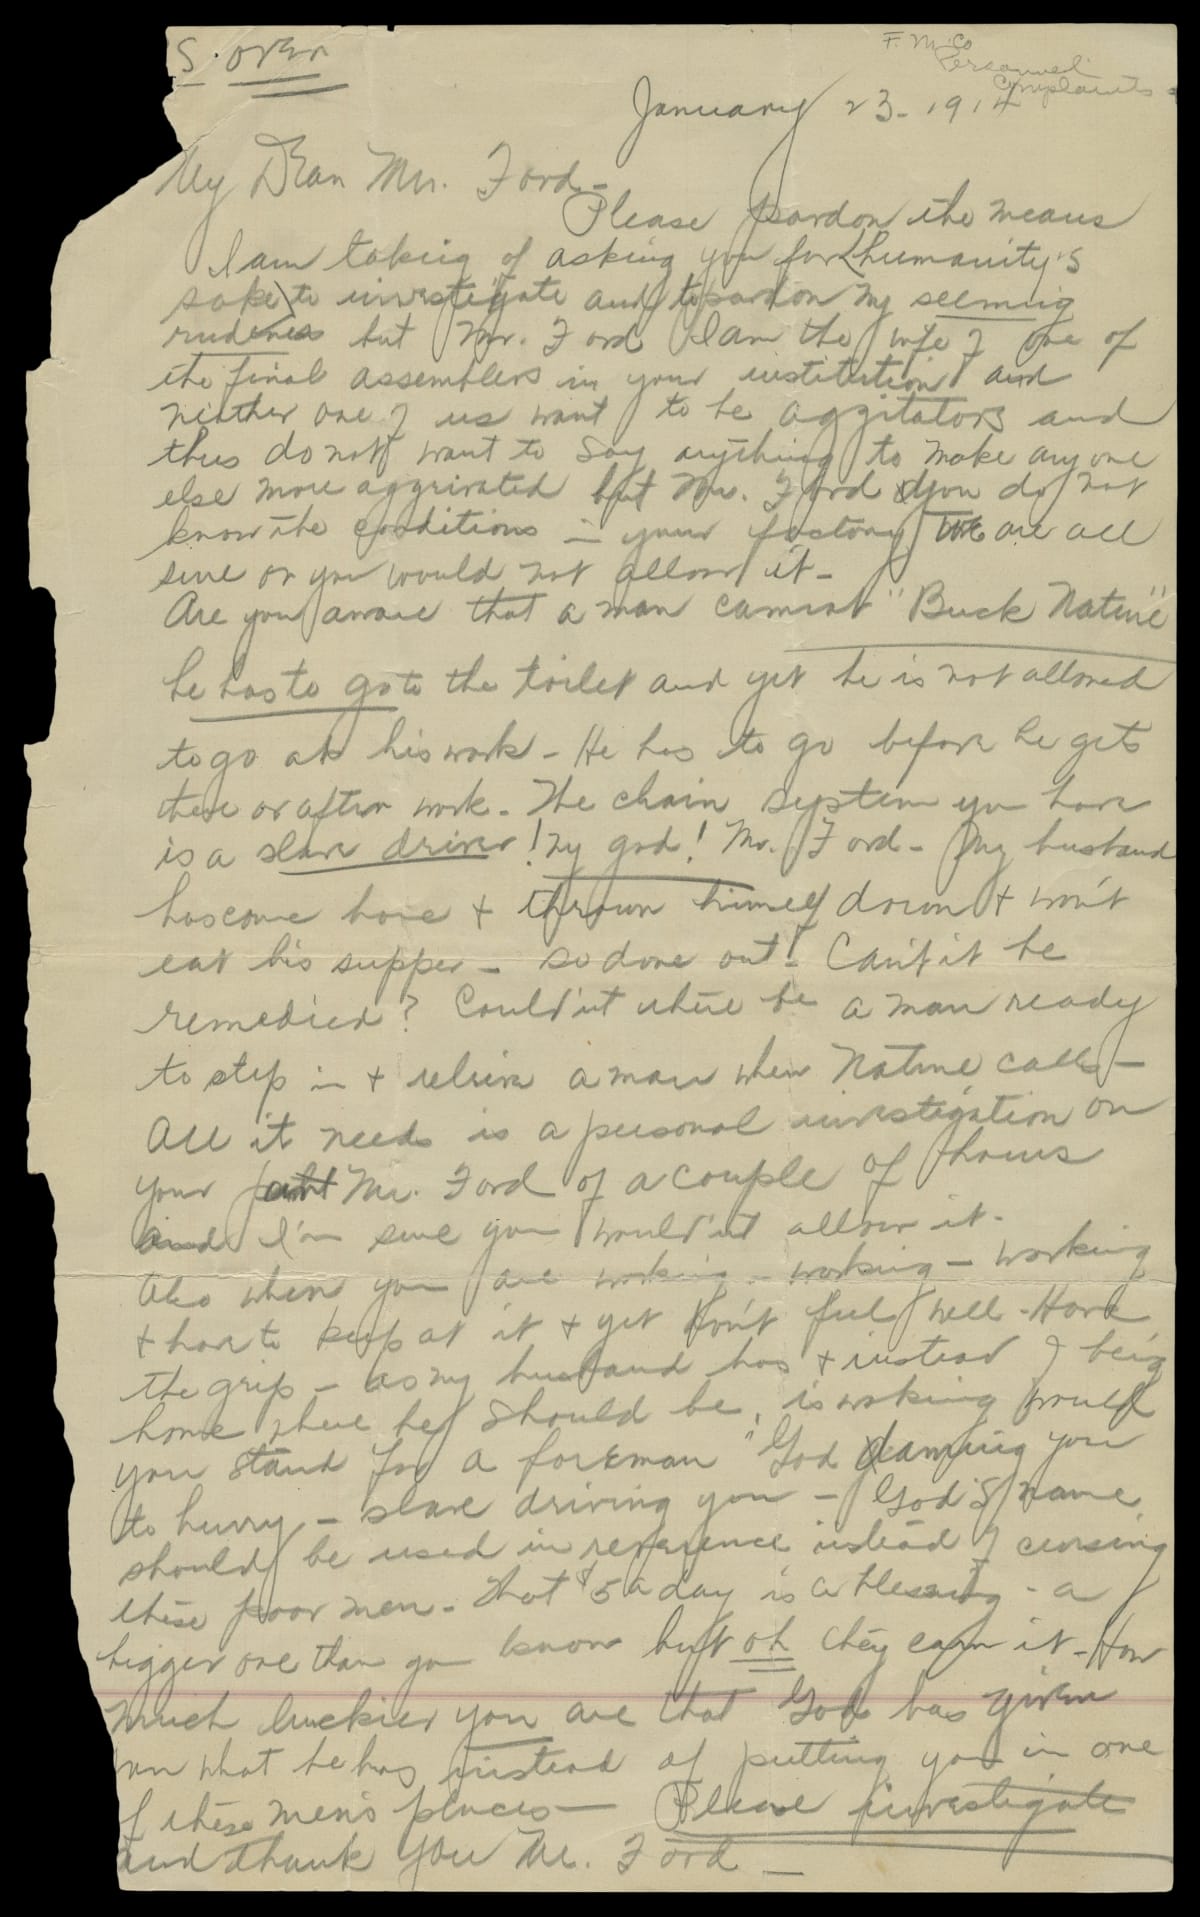 S. over
F. M. Co
Personnel
Complaints
January 23 - 1914
My Dear Mr. Ford -
Please pardon the means
I am taking of asking you for (humanity's
sake) to investigate and to pardon my seeming
rudeness but Mr. Ford I am the wife of one of
the final assemblers in your institution and
neither one of us want to be aggitators and
thus do not want to say anything to make any one
else more aggrivated but Mr. Ford you do not
know the conditions in your factory we are all
sure or you would not allow it -
Are you aware that a man cannot "Buck Nature"
he has to go to the toilet and yet he is not allowed
to go at his work - He has to go before he gets
there or after work. The chain system you have
is a slave driver! My god! Mr. Ford - My husband
has come home & thrown himself down & won't
eat his supper - so done out! Can't it be
remedied? Could'nt there be a man ready
to step in & relieve a man when Nature calls -
All it needs is a personal investigation on
your part Mr. Ford of a couple of hours
and I'm sure you would'nt allow it.
Also when you are working - working - working
& have to keep at it & yet don't feel well - Have
the grip - as my husband has & instead of being
home where he should be, is working would
you stand for a foreman "God damning you
to hurry - slave driving you - God's name
should be used in reverence instead of cursing
these poor men - That $5 a day is a blessing - a
bigger one than you know but oh they earn it - How
much luckier you are that God has given
what he has instead of putting you in one
of these men's places - Please investigate
and thank you Mr. Ford -